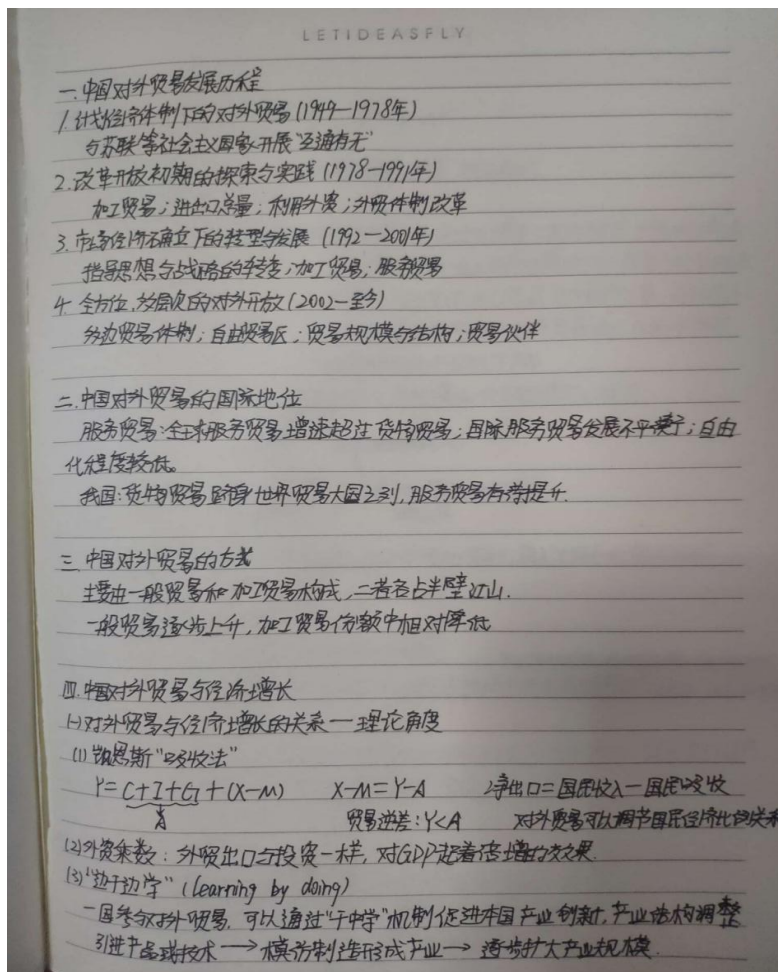 LETIDEASFLY
一.中国对外贸易发展历程
1.计划经济体制下的对外贸易(1949—1978年)
与苏联等社会主义国家开展"互通有无"
2.改革开放初期的探索与实践(1978—1991年)
加工贸易;进出口总量;利用外资;外贸体制改革
3.市场经济确立下的转型与发展(1992—2001年)
指导思想与战略的转变;加工贸易;服务贸易
4.全方位,多层次的对外开放(2002—至今)
多边贸易体制;自由贸易区;贸易规模与结构;贸易伙伴
二.中国对外贸易的国际地位
服务贸易:全球服务贸易增速超过货物贸易;国际服务贸易发展不平衡;自由
化程度较低。
我国:货物贸易跻身世界贸易大国之列,服务贸易有待提升.
三.中国对外贸易的方式
主要由一般贸易和加工贸易构成,二者各占半壁江山.
一般贸易逐步上升,加工贸易份额中相对降低
四.中国对外贸易与经济增长
(一)对外贸易与经济增长的关系—理论角度
(1)凯恩斯"吸收法"
Y=C+I+G+(X-M) X-M=Y-A 净出口=国民收入-国民吸收
A 贸易逆差:Y<A 对外贸易可以调节国民经济比例关系
(2)外贸乘数:外贸出口与投资一样,对GDP起着倍增的效果.
(3)"边干边学"(learning by doing)
一国参与对外贸易,可以通过"干中学"机制促进本国产业创新,产业结构调整
引进产品或技术→模仿制造形成产业→逐步扩大产业规模.